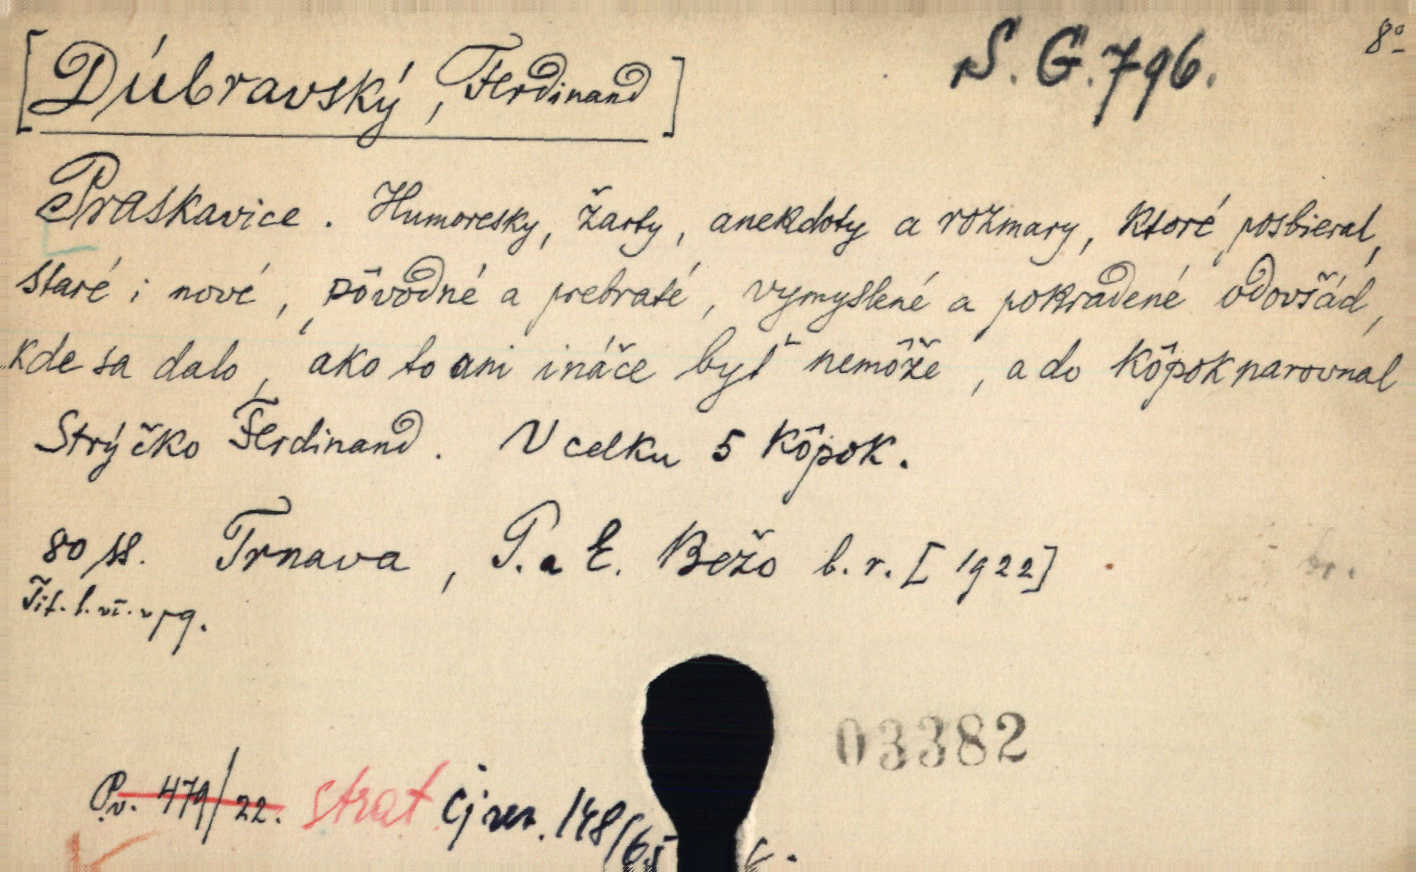 [Dúbravský, Ferdinand]
S. G. 796.
8º
Praskavice. Humoresky, žarty, anekdoty a rozmary, ktoré posbieral,
staré i nové, pôvodné a prebraté, vymyslené a pokradené odovšád,
kde sa dalo, ako to ani ináče byť nemôže, a do kôpok narovnal
Strýčko Ferdinand. V celku 5 kôpok.
80 ss. Trnava, P. a E. Bežo b. r. [1922]
br.
Tit. l.
03382
Pv. 479/22. strat čj rev. 148/65